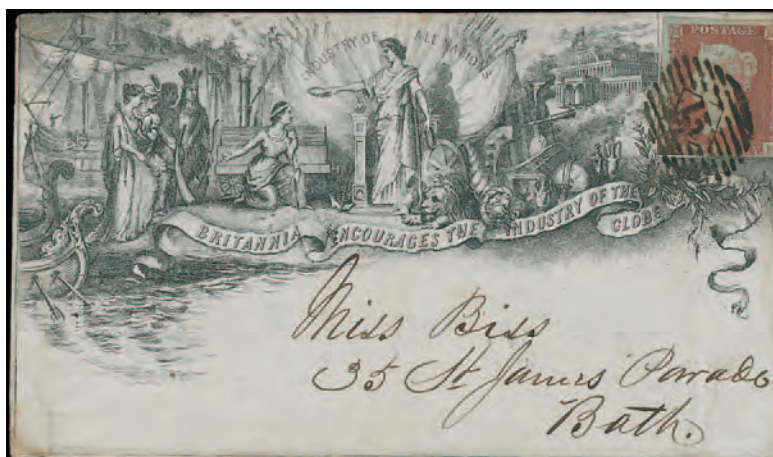 POSTAGE
INDUSTRY OF ALL NATIONS
BRITANNIA ENCOURAGES THE INDUSTRY OF THE GLOBE
Miss Biss
35 St James Parade
Bath.